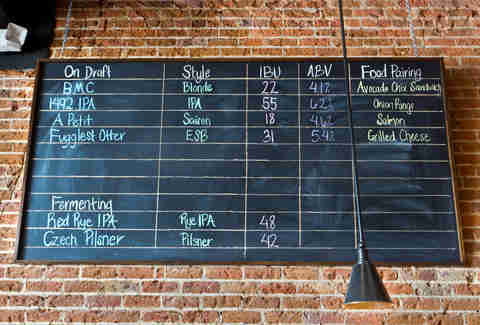 On Draft Style IBU ABV Food Pairing
BMC Blonde 22 Avocado Chix Sandwich
1492 IPA IPA 55
A Petit Saison 18 Salmon
Fugglest Otter ESB 31 Grilled Cheese
Fermenting
Red Rye IPA Rye IPA 48
Czech Pilsner Pilsner 42